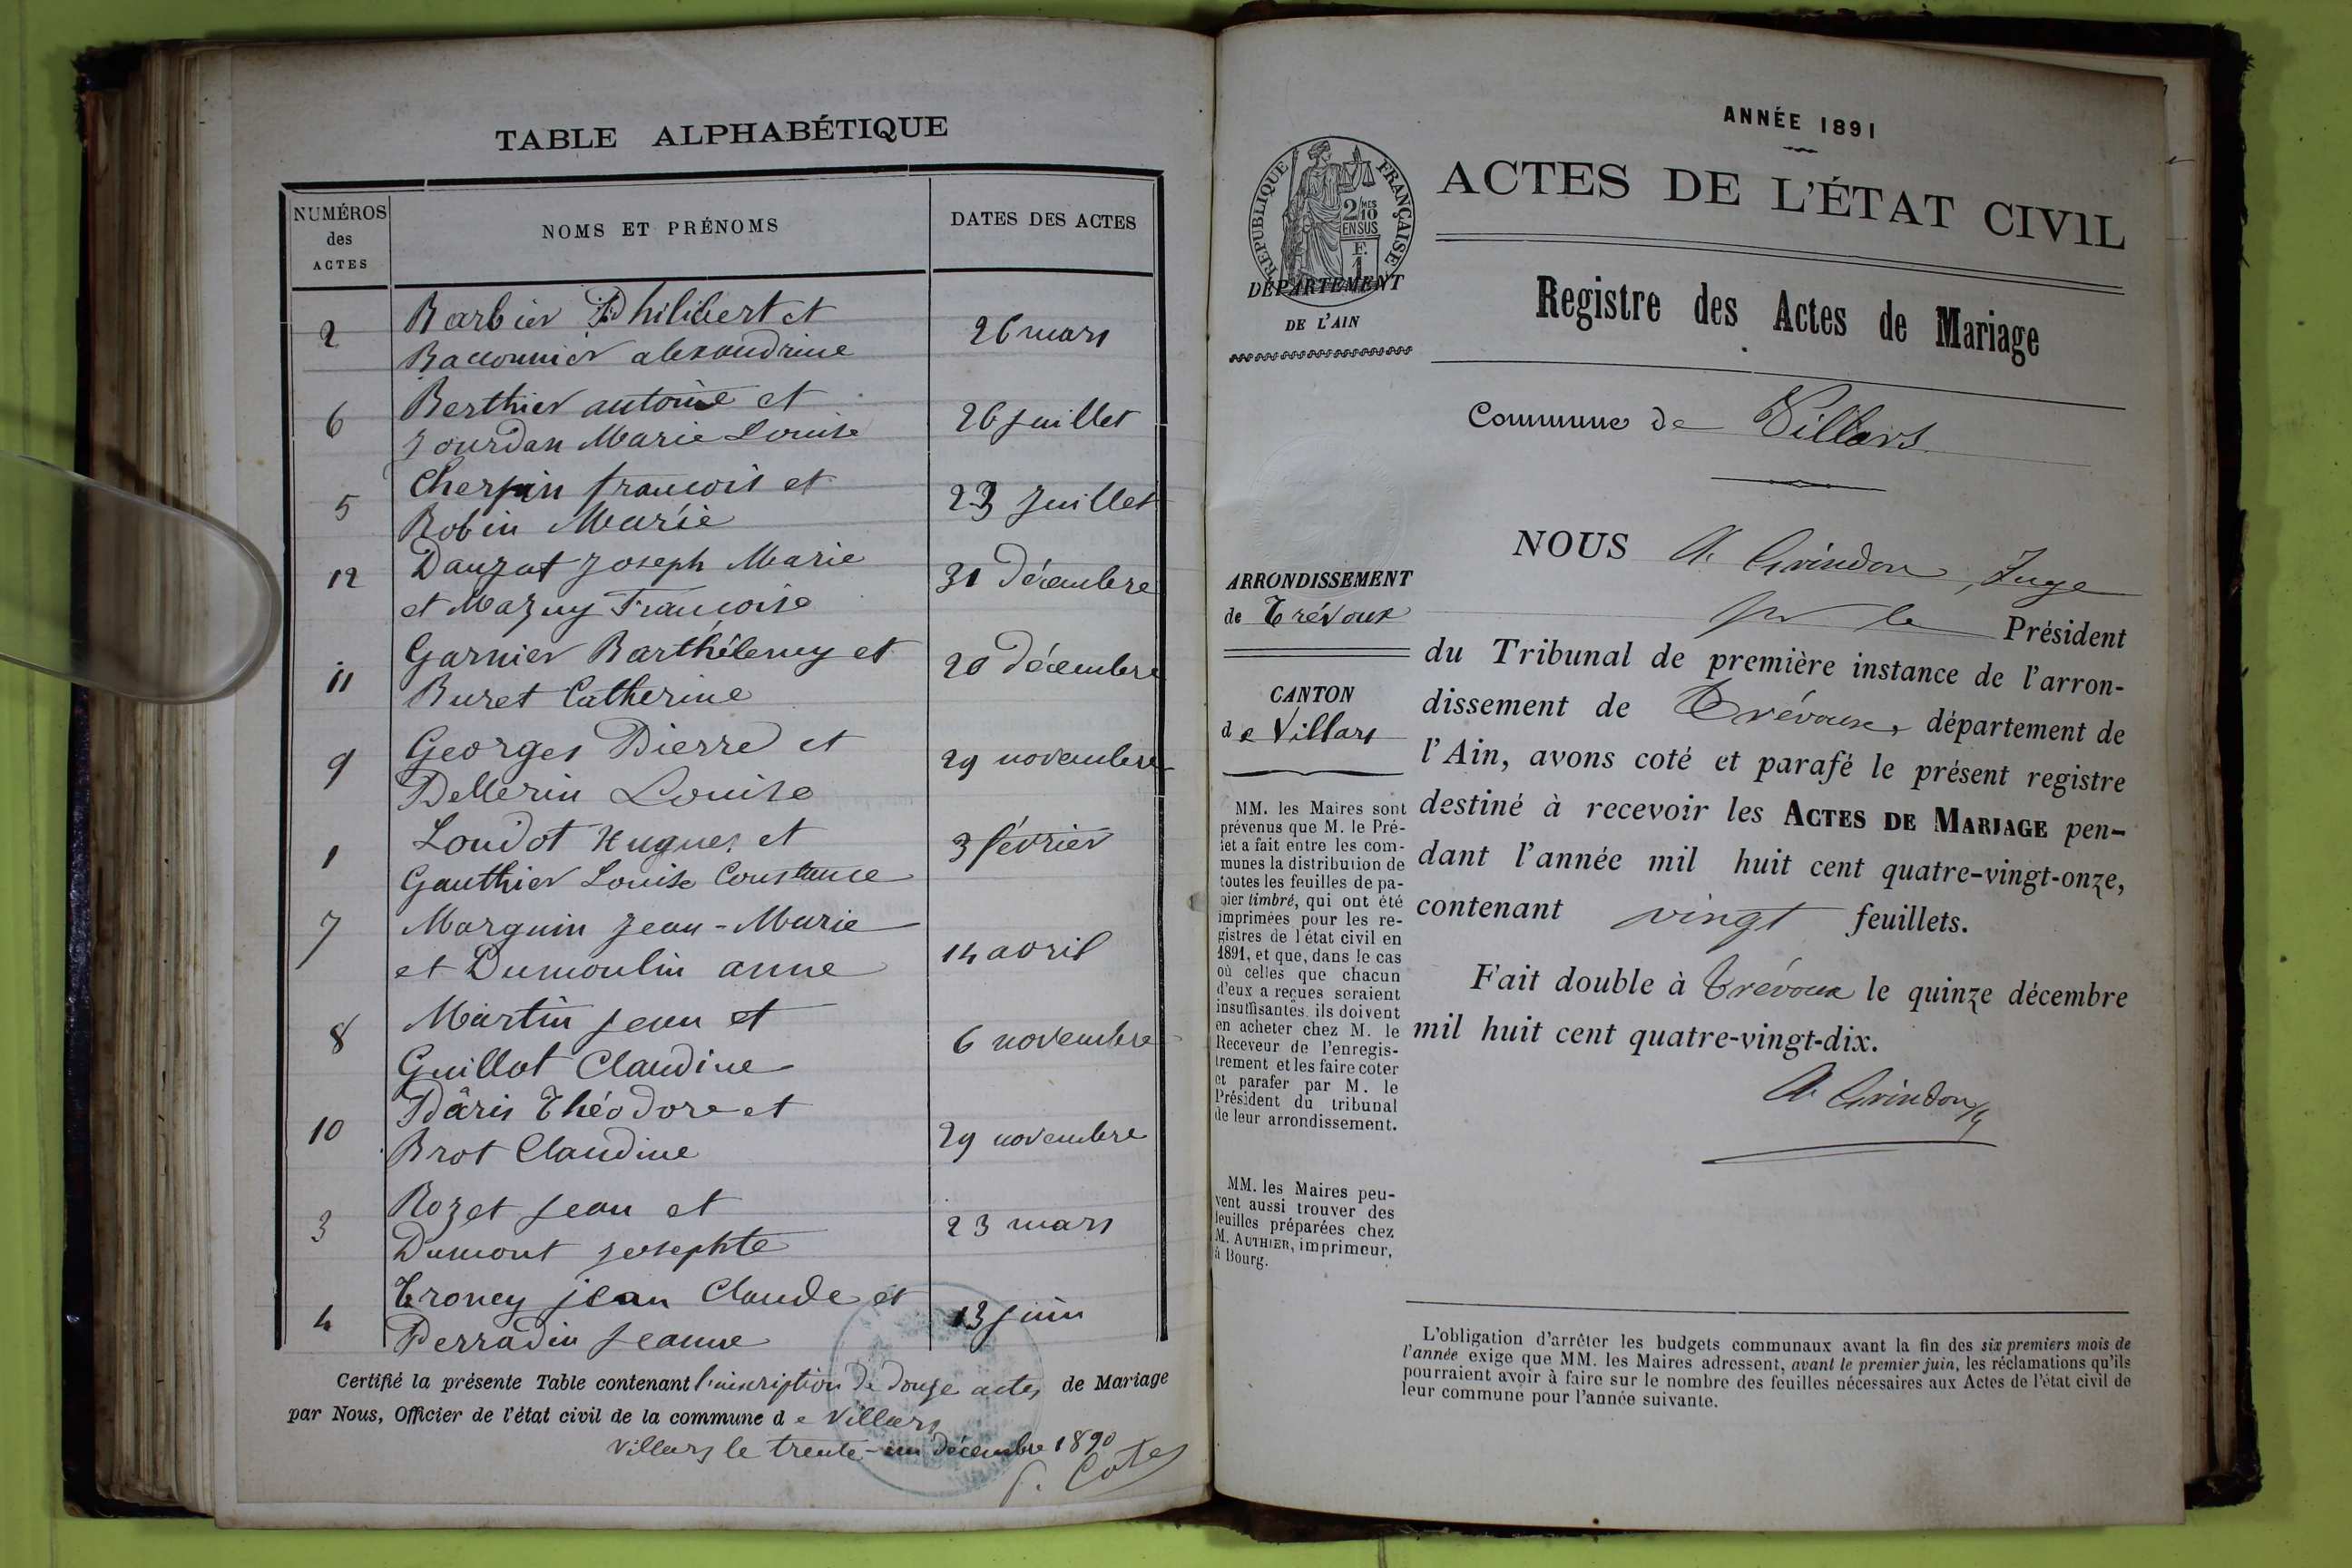 TABLE ALPHABÉTIQUE
NUMÉROS
des
ACTES
NOMS ET PRÉNOMS
DATES DES ACTES
2
Barbier Philibert et
Baconnier alexandrine
26 mars
6
Berthier antoine et
Jourdan Marie Louise
26 juillet
5
Cherpin françois et
Robin Marie
23 Juillet
12
Dauzat Joseph Marie
et Mazuy Françoise
31 Décembre
11
Garnier Barthélemy et
Buret Catherine
20 Décembre
9
Georges Pierre et
Pellerin Louise
29 novembre
1
Loudot Hugues et
Gauthier Louise Constance
3 février
7
Marguin Jean-Marie
et Dumoulin anne
14 avril
8
Martin Jean et
Guillot Claudine
6 novembre
10
Pâris Théodore et
Brot Claudine
29 novembre
3
Rozet Jean et
Dumont Josephte
23 mars
4
Troncy jean Claude et
Perradin Jeanne
13 juin
Certifié la présente Table contenant l'inscription de douze actes de Mariage
par Nous, Officier de l'état civil de la commune de Villars
Villars le trente-un décembre 1890
Cote
ANNÉE 1891
RÉPUBLIQUE FRANÇAISE
2/10 MES
EN SUS
F.
1
ACTES DE L'ÉTAT CIVIL
DÉPARTEMENT
DE L'AIN
Registre des Actes de Mariage
Commune de Villars
ARRONDISSEMENT
de Trévoux
CANTON
de Villars
MM. les Maires sont
prévenus que M. le Pré-
fet a fait entre les com-
munes la distribution de
toutes les feuilles de pa-
pier timbré, qui ont été
imprimées pour les re-
gistres de l'état civil en
1891, et que, dans le cas
où celles que chacun
d'eux a reçues seraient
insuffisantes, ils doivent
en acheter chez M. le
Receveur de l'enregis-
trement et les faire coter
et parafer par M. le
Président du tribunal
de leur arrondissement.
MM. les Maires peu-
vent aussi trouver des
feuilles préparées chez
M. AUTHIER, imprimeur,
à Bourg.
NOUS A. Grindon, Juge
pr le Président
du Tribunal de première instance de l'arron-
dissement de Trévoux, département de
l'Ain, avons coté et parafé le présent registre
destiné à recevoir les ACTES DE MARIAGE pen-
dant l'année mil huit cent quatre-vingt-onze,
contenant vingt feuillets.
Fait double à Trévoux le quinze décembre
mil huit cent quatre-vingt-dix.
A. Grindon
L'obligation d'arrêter les budgets communaux avant la fin des six premiers mois de
l'année exige que MM. les Maires adressent, avant le premier juin, les réclamations qu'ils
pourraient avoir à faire sur le nombre des feuilles nécessaires aux Actes de l'état civil de
leur commune pour l'année suivante.